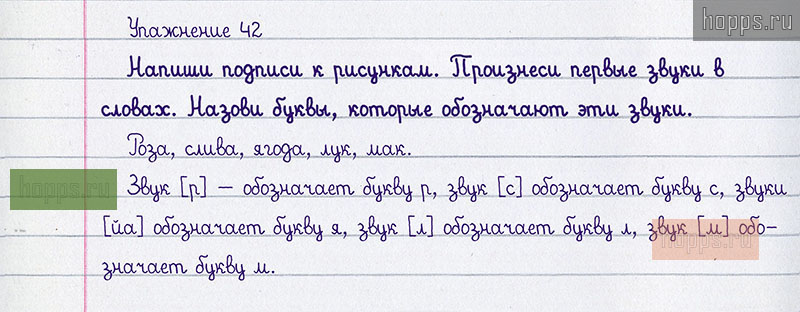 hopps.ru
Упажнение 42
Напиши подписи к рисункам. Произнеси первые звуки в
словах. Назови буквы, которые обозначают эти звуки.
Роза, слива, ягода, лук, мак.
hopps.ru
Звук [р] — обозначает букву р, звук [с] обозначает букву с, звуки
[йа] обозначает букву я, звук [л] обозначает букву л, звук [м] обо-
hopps.ru
значает букву м.